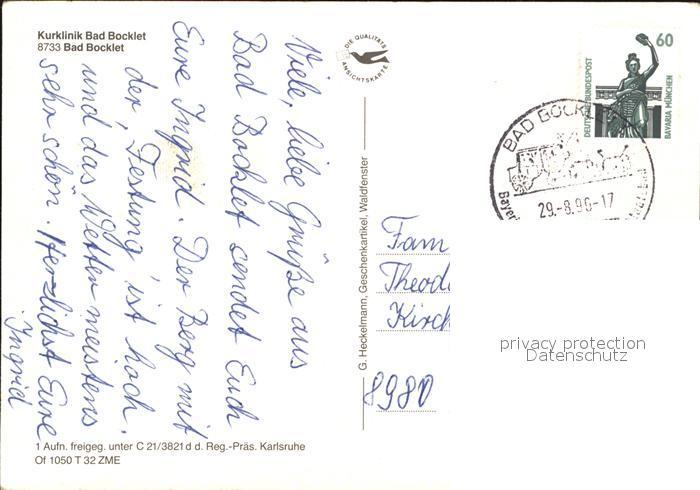 Kurklinik Bad Bocklet
8733 Bad Bocklet
DIE QUALITÄTS
ANSICHTSKARTE
Viele, liebe Grüße aus
Bad Bocklet sendet Euch
Eure Ingrid. Der Berg mit
der "Festung" ist hoch.
und das Wetter meistens
sehr schön. Herzlichst Eure
Ingrid
G. Heckelmann, Geschenkartikel, Waldfenster
60
DEUTSCHE BUNDESPOST
BAVARIA MÜNCHEN
BAD BOCKLET
29.-8.90-17
Bayer
Fam
Theod
Kirch
8980
privacy protection
Datenschutz
1 Aufn. freigeg. unter C 21/3821 d d. Reg.-Präs. Karlsruhe
Of 1050 T 32 ZME